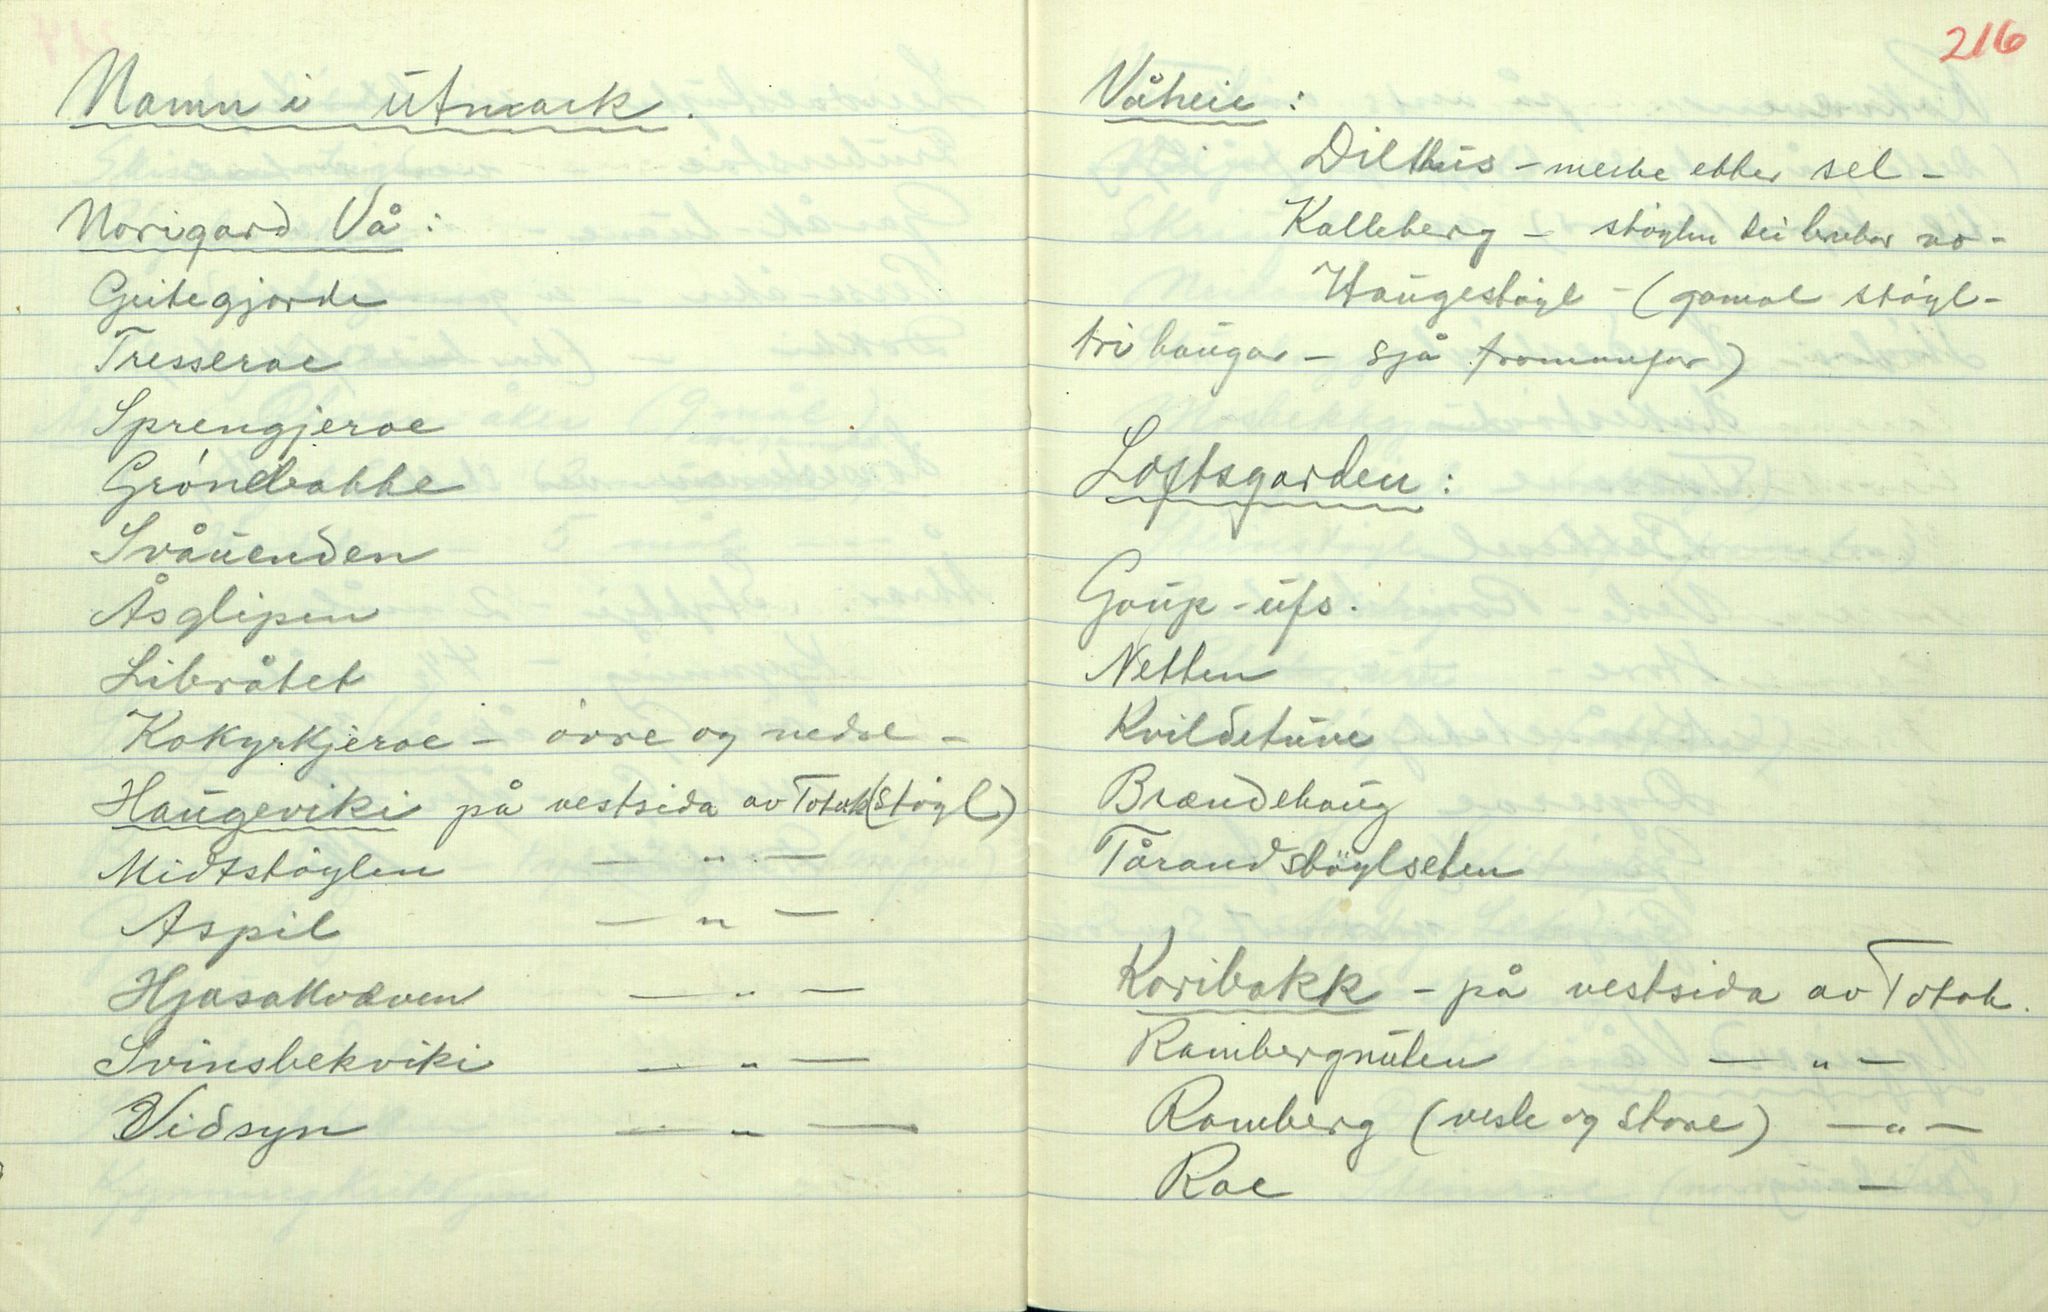 Namn i útmark.
Norigard Vå:
Geitegjorde
Tresseroe
Sprengjeroe
Gróndbakke
Svåúenden
Åsglipen
Libråtet
Kokyrkjeroe - óvre og nedre -
Haúgeviki på vestsida av Totak (Stóyl)
Midtstóylen — " —
Aspil — " —
Hjasakvæven — " —
Svinsbekviki — " —
Vidsyn — " —
216
Våheie:
Dilthús - merke etter sel -
Kalleberg - stóylen dei brukar no -
Haúgestóyl - (gamal stóyl -
tri haúgar - sjå framanfor)
Loftsgarden:
Gaúp-úfs.
Netten
Kvildetúve
Brændehaúg
Tårandstöylseten
Koribakk - på vestsida av Totak.
Rambergnúten — " —
Ramberg (vesle og store) — " —
Roe —